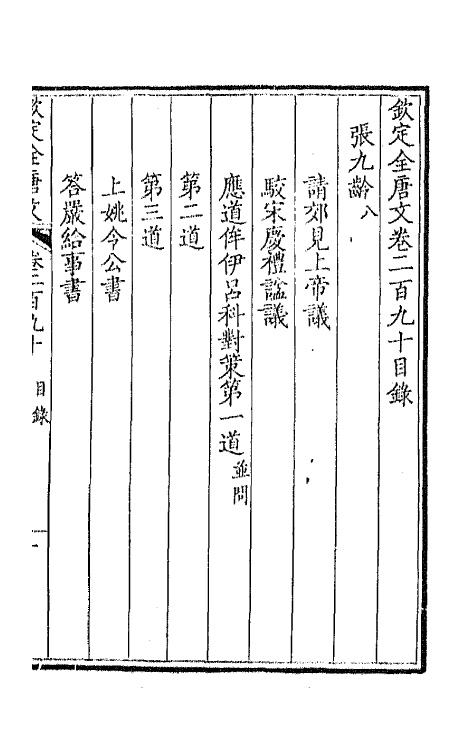 欽定全唐文卷二百九十目錄
張九齡八
請郊見上帝議
駮宋慶禮諡議
應道侔伊呂科對策第一道並問
第二道
第三道
上姚令公書
答嚴給事書
欽定全唐文 卷二百九十 目錄 一